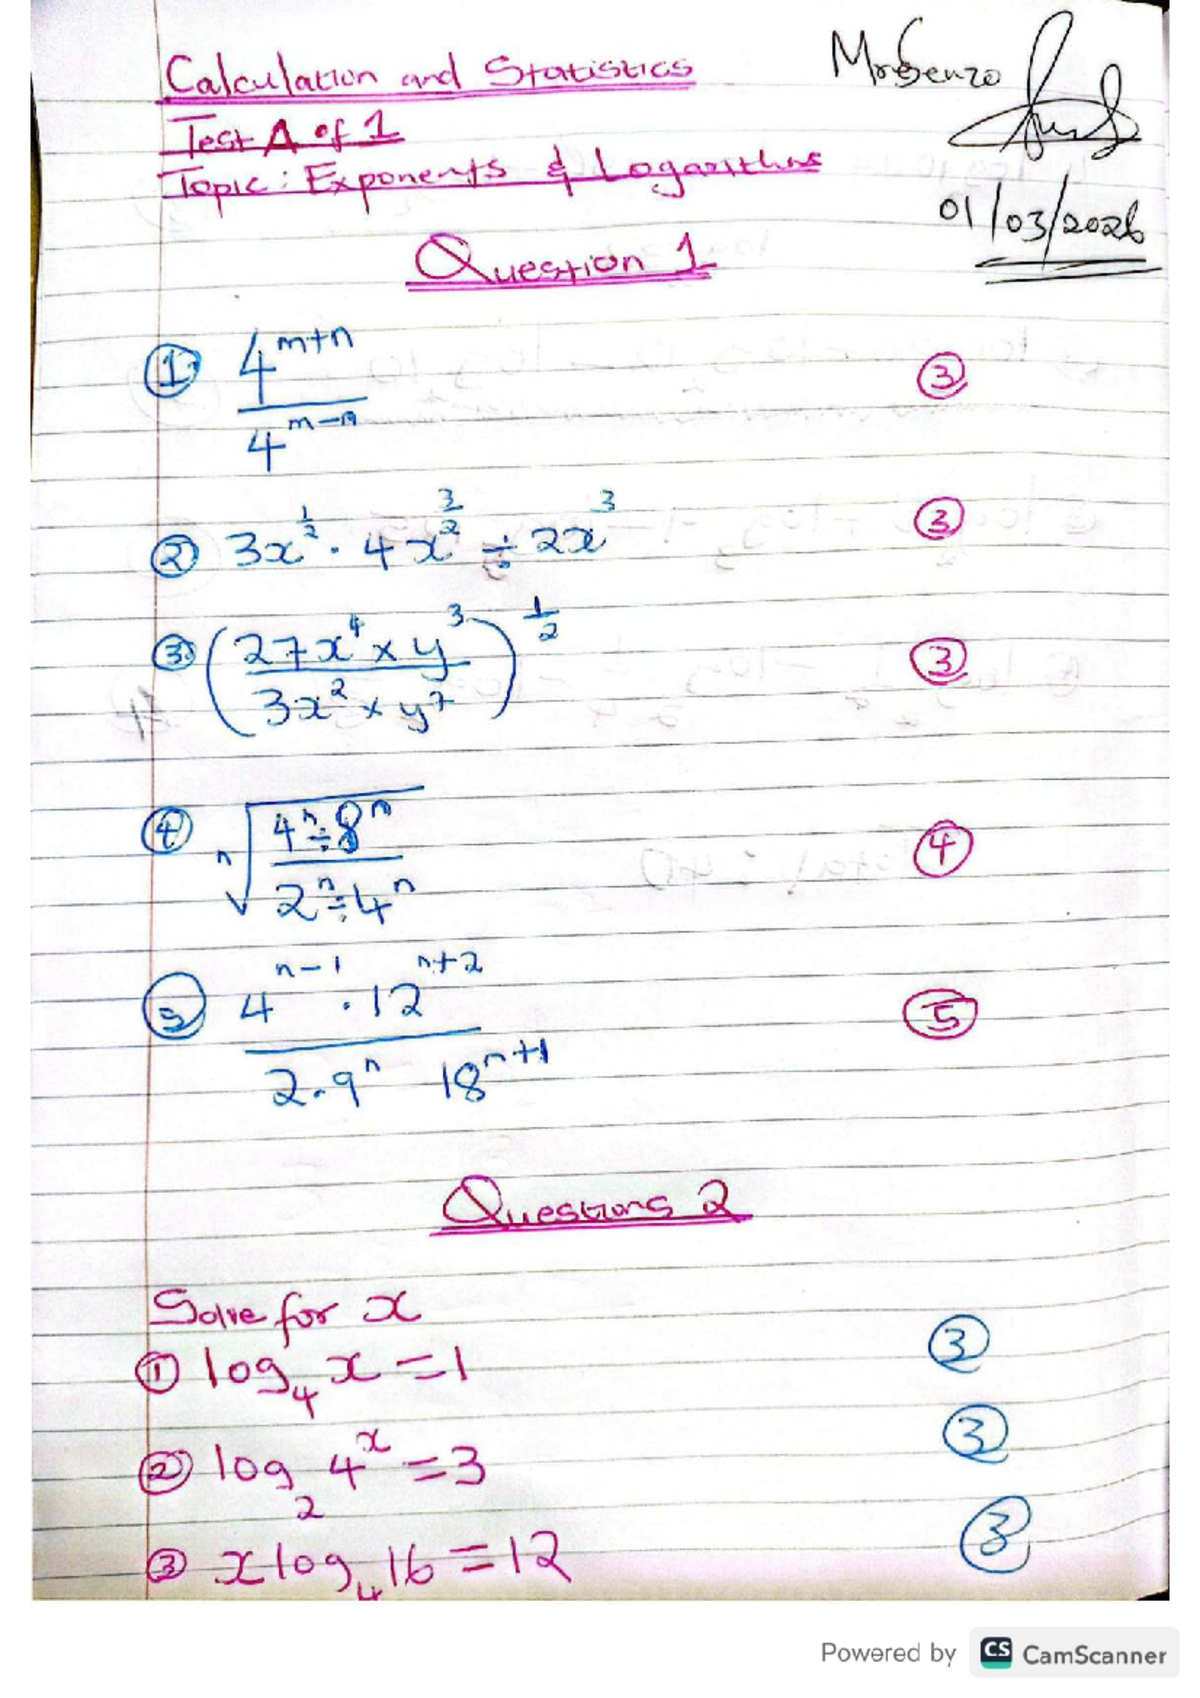 Calculation and Statistics
Mr Senzo
Test A of 1
Topic: Exponents & Logarithms
01/03/2026
Question 1
① 4^(m+n) / 4^(m-n) ③
② 3x^(1/2) · 4x^(3/2) ÷ 2x^3 ③
③ ((27x^4 × y^3) / (3x^2 × y^7))^(1/2) ③
④ ⁿ√((4^n ÷ 8^n) / (2^n ÷ 4^n)) ④
⑤ (4^(n-1) · 12^(n+2)) / (2 · 9^n 18^(n+1)) ⑤
Questions 2
Solve for x
① log₄ x = 1 ③
② log₂ 4^x = 3 ③
③ x log₄ 16 = 12 ③
Powered by CS CamScanner